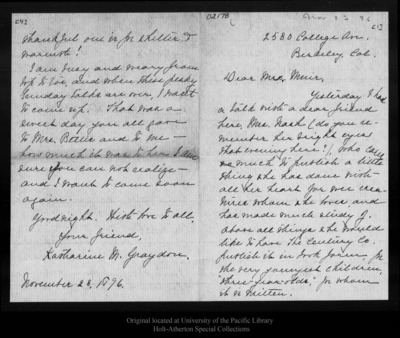 02178
Nov 23 96
2530 College Ave.
Berkeley, Cal.
Dear Mrs. Muir,
Yesterday I had
a talk with a dear friend
here, Mrs. Nash (do you re-
member her bright eyes
that evening here?), who
much to publish a little
thing she has done with
all her heart for wee crea-
tures whom she loves and
has made much study of.
Above all things she would
like to have the Century Co.
publish it in book form, for
the very youngest children,
three-year-olds, for whom
it is written.
thankful one is for shelter &
warmth!
I am busy and weary from
top to toe, and when these
Sunday talks are over, I want
to come up. That was a
sweet day you all gave
to Mrs. and to me —
how much it was to her I am
sure you can not realize —
and I want to come soon
again.
Goodnight. With love to all.
Your friend,
Katharine M. Graydon.
November 23, 1896.
Original located at University of the Pacific Library
Holt-Atherton Special Collections